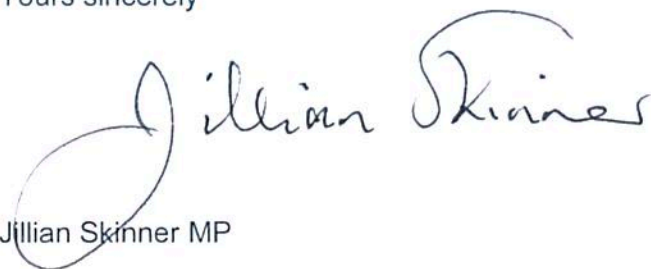 Yours sincerely
Jillian Skinner
Jillian Skinner MP